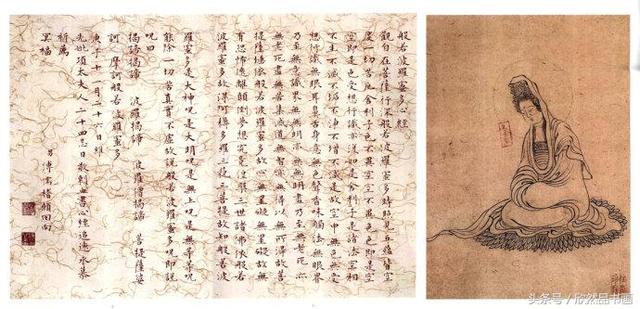 般若波羅蜜多心經
觀自在菩薩行深般若波羅蜜多時照見五蘊皆空
度一切苦厄舍利子色不異空空不異色色即是空
空即是色受想行識亦復如是舍利子是諸法空相
不生不滅不垢不淨不增不減是故空中無色無受
想行識無眼耳鼻舌身意無色聲香味觸法無眼界
乃至無意識界無無明亦無無明盡乃至無老死亦
無老死盡無苦集滅道無智亦無得以無所得故菩
提薩埵依般若波羅蜜多故心無罣礙無罣礙故無
有恐怖遠離顛倒夢想究竟涅槃三世諸佛依般若
波羅蜜多故得阿耨多羅三藐三菩提故知般若波
羅蜜多是大神咒是大明咒是無上咒是無等等咒
能除一切苦真實不虛故說般若波羅蜜多咒即說
咒曰
揭諦揭諦 波羅揭諦 波羅僧揭諦 菩提薩婆
訶 摩訶般若波羅蜜多
十一月二十
先妣項太夫人二十四忌日敬 書心經
薦
冥福
男溥 稽顙回向
头条号 / 欣然品书画